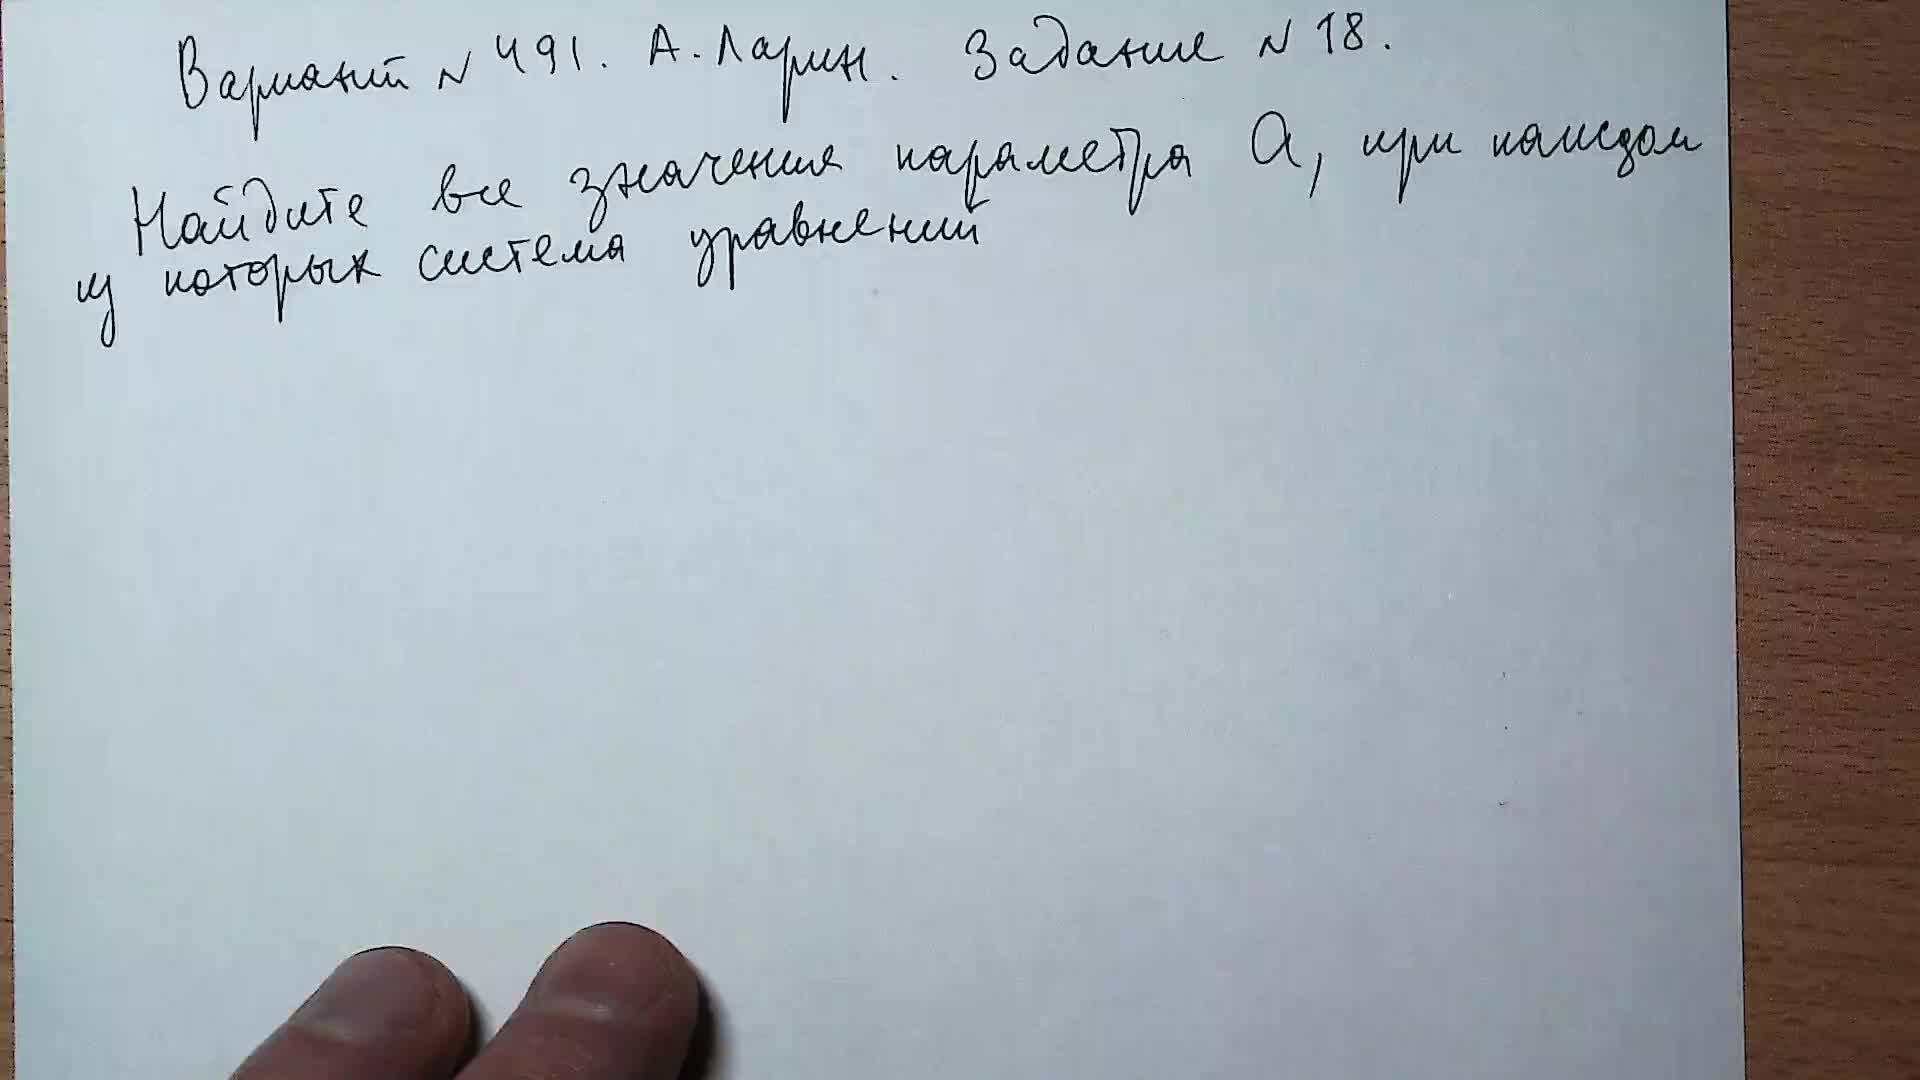 Вариант № 491. А. Ларин. Задание № 18.
Найдите все значения параметра а, при каждом
из которых система уравнений